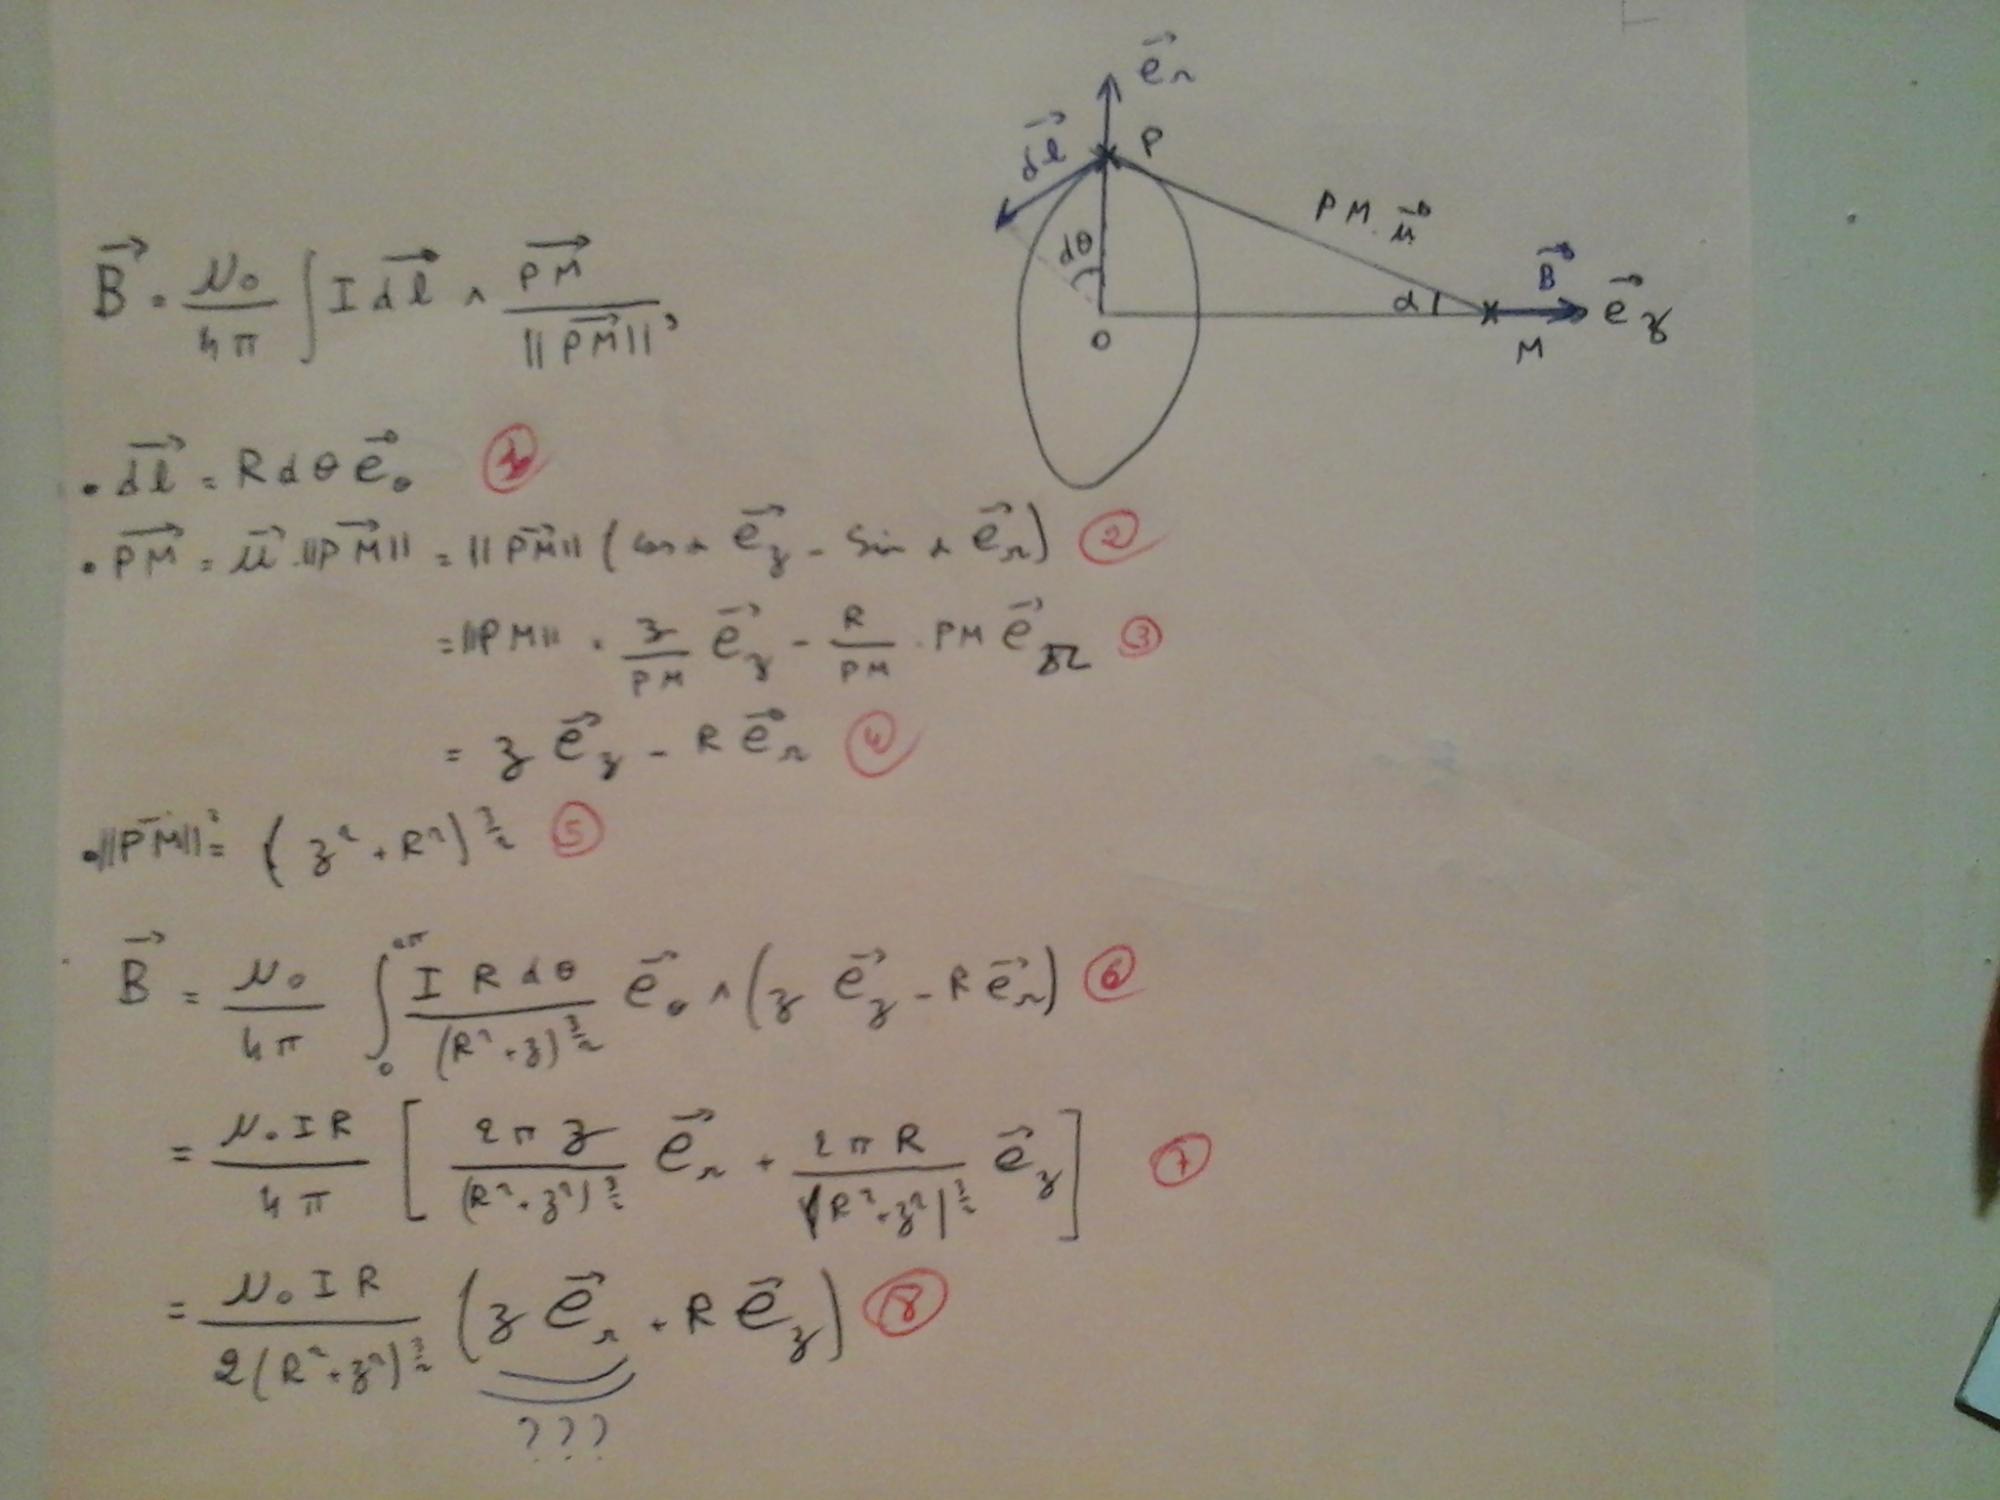 e⃗r
d⃗l
P
dθ
PM.u⃗
B⃗
α
e⃗z
O
M
B⃗ = μ₀/4π ∫ I d⃗l ∧ P⃗M/||P⃗M||³
• d⃗l = R dθ e⃗θ ①
• P⃗M = u⃗.||P⃗M|| = ||P⃗M|| (cos α e⃗z - sin α e⃗r) ②
= ||PM|| . z/PM e⃗z - R/PM . PM e⃗r ③
= z e⃗z - R e⃗r ④
• ||P⃗M||³ = (z² + R²)^3/2 ⑤
B⃗ = μ₀/4π ∫₀^2π I R dθ/(R² + z)^3/2 e⃗θ ∧ (z e⃗z - R e⃗r) ⑥
= μ₀ I R/4π [2π z/(R² + z²)^3/2 e⃗r + 2π R/(R² + z²)^3/2 e⃗z] ⑦
= μ₀ I R/2(R² + z²)^3/2 (z e⃗r + R e⃗z) ⑧
???